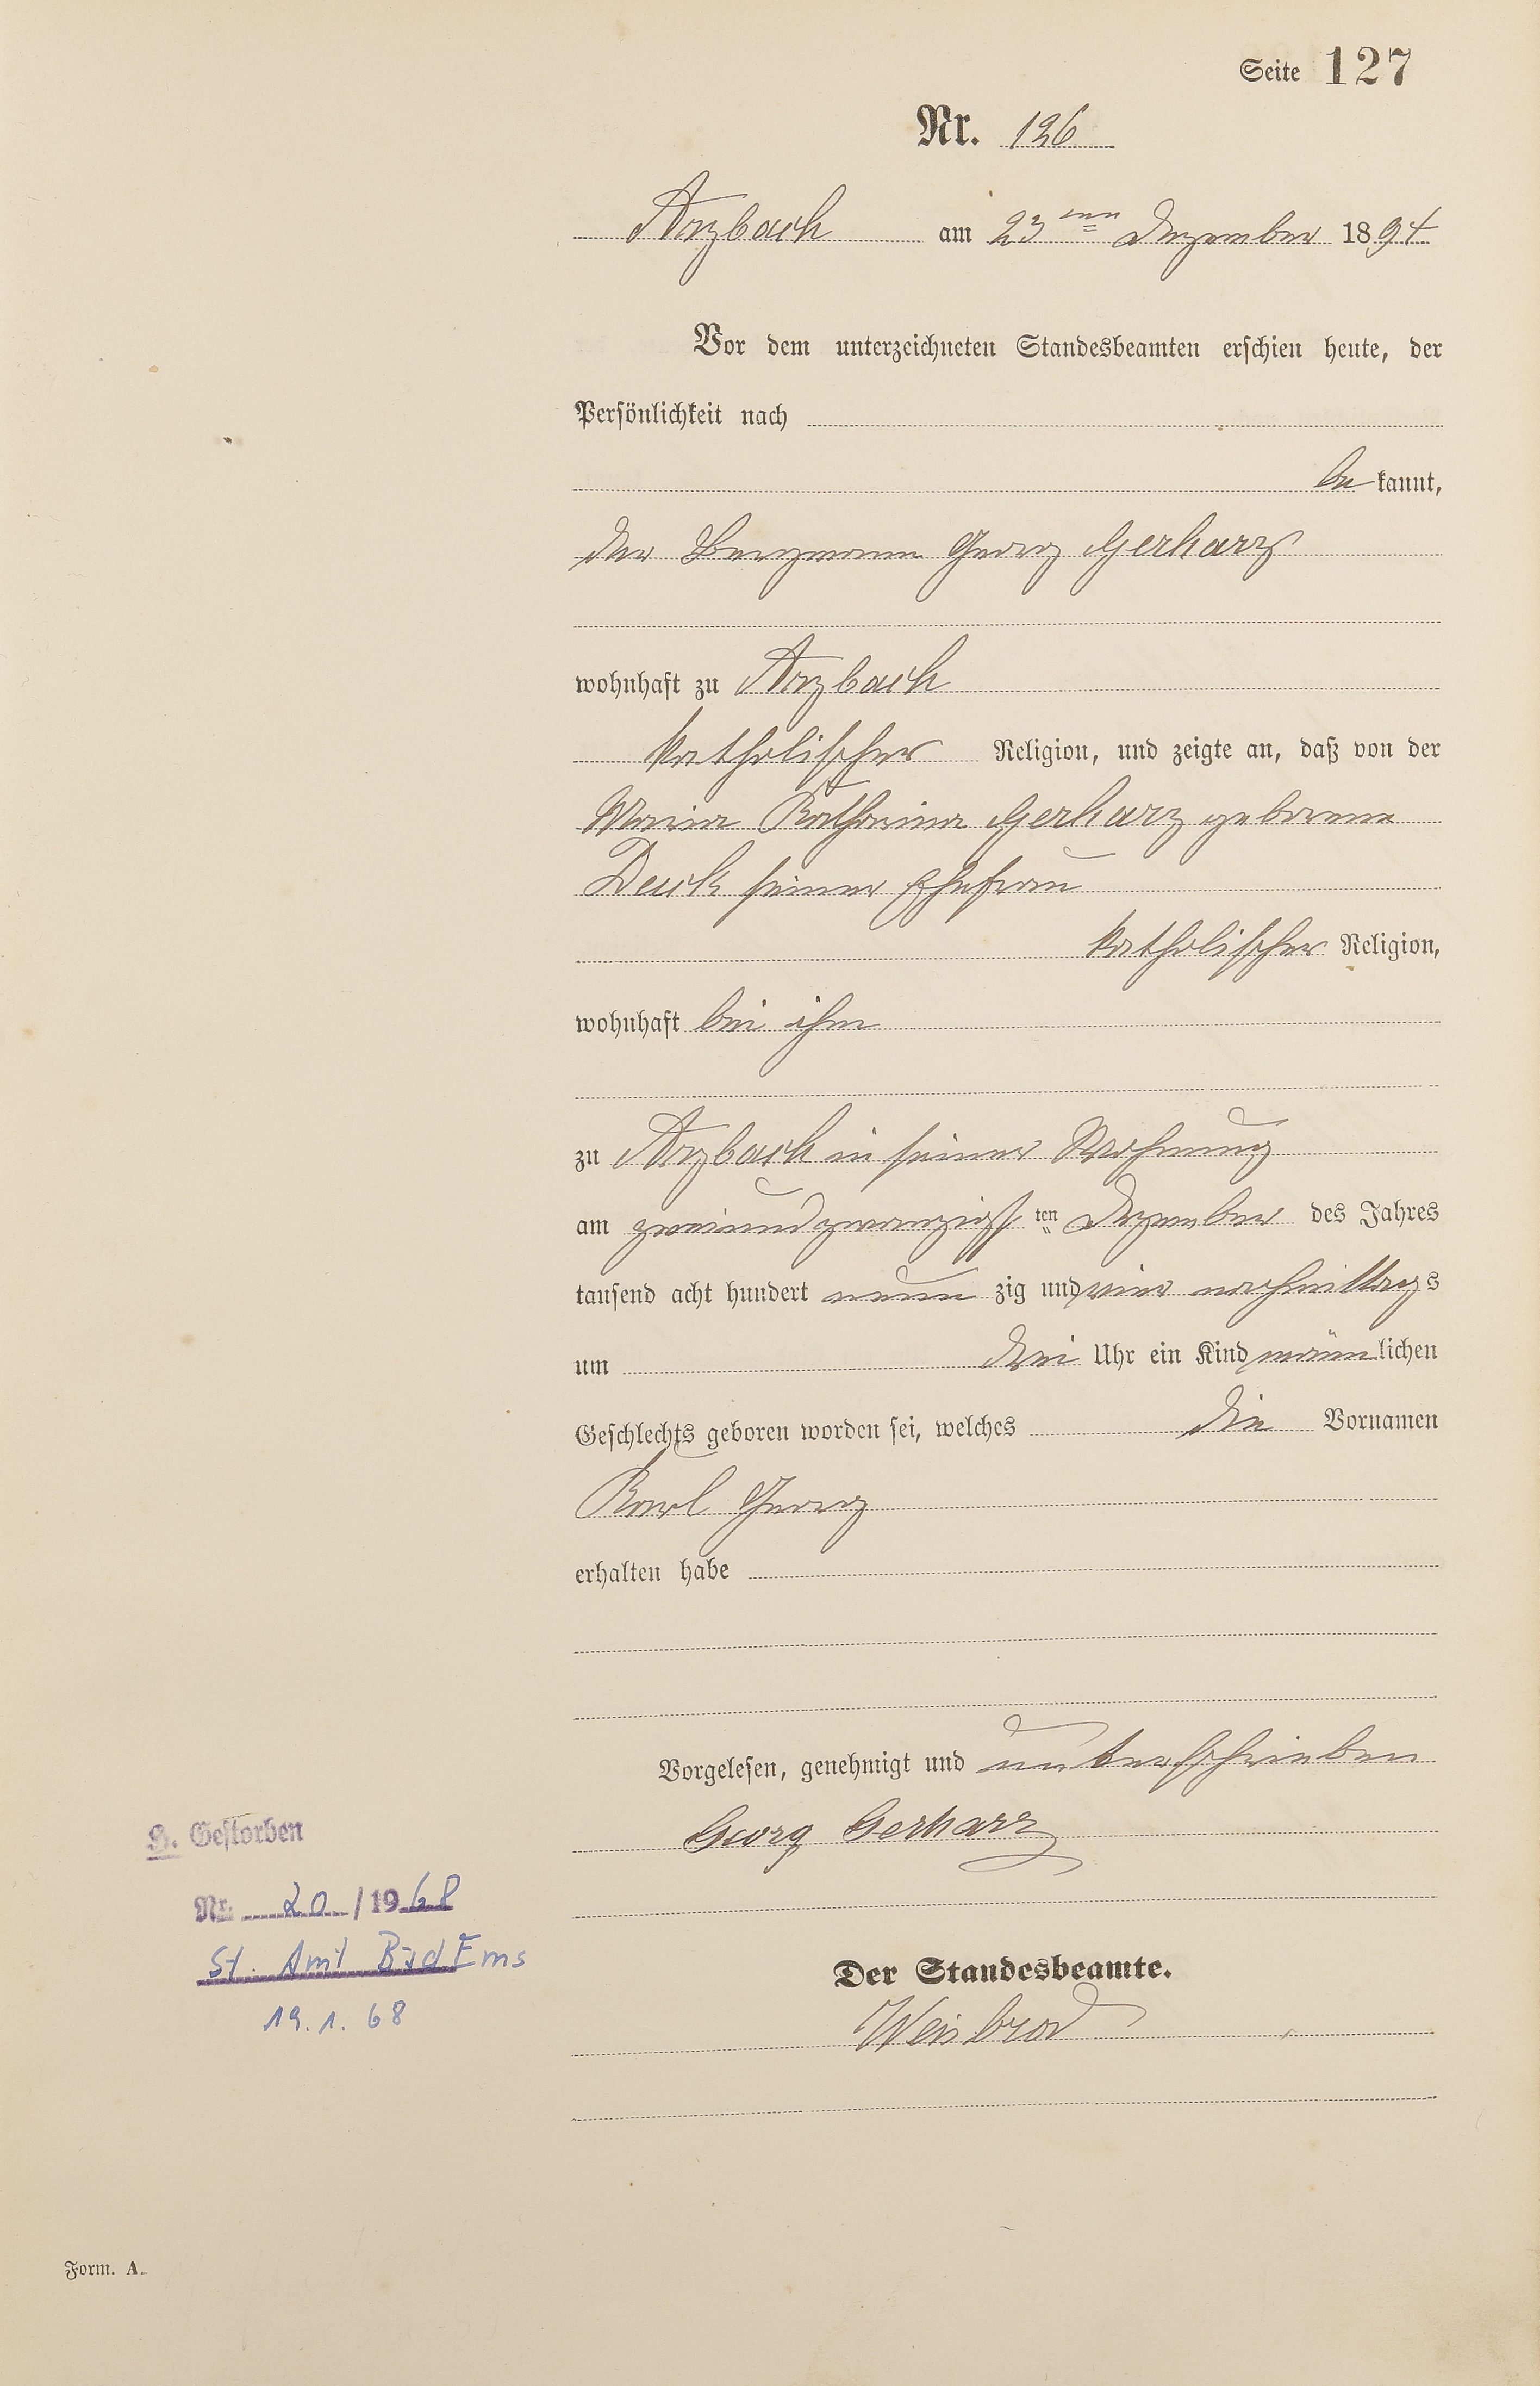 Seite 127
Nr. 126
Arzbach am 23ten Dezember 1894
Vor dem unterzeichneten Standesbeamten erschien heute, der
Persönlichkeit nach
be kannt,
der Bergmann Georg Gerharz
wohnhaft zu Arzbach
katholischer Religion, und zeigte an, daß von der
Maria Katharina Gerharz geborene
seiner Ehefrau
katholischer Religion,
wohnhaft bei ihm
zu Arzbach in seiner Wohnung
am zweiundzwanzigsten Dezember des Jahres
tausend acht hundert neun zig und vier nachmittags
um drei Uhr ein Kind männlichen
Geschlechts geboren worden sei, welches die Vornamen
Karl Georg
erhalten habe
Vorgelesen, genehmigt und unterschrieben
Georg Gerharz
Der Standesbeamte.
Weisbrod
H. Gestorben
Nr. 20/1968
St. Amt Bad Ems
19.1.68
Form. A.